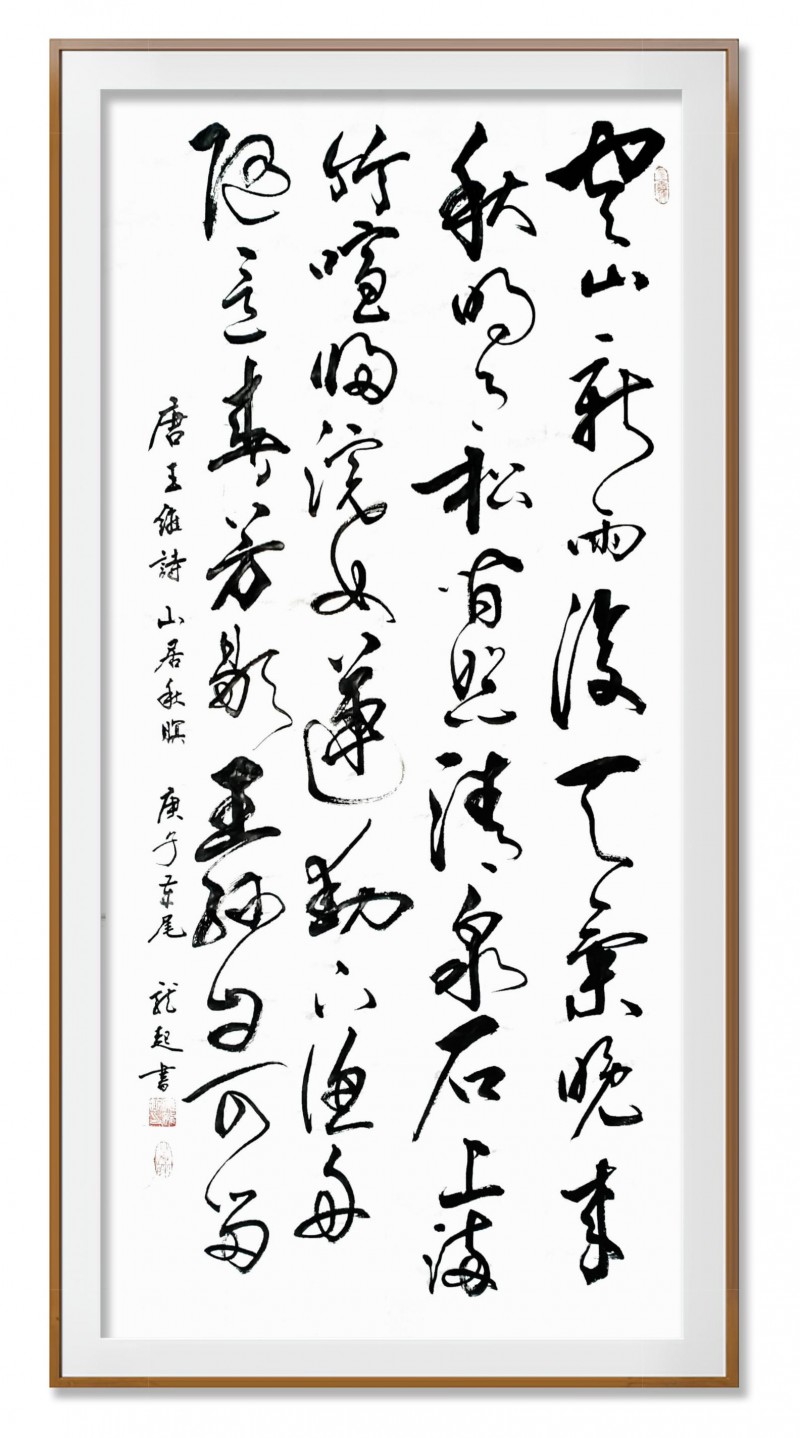 空山新雨後天氣晚来
秋明月松間照清泉石上流
竹喧歸浣女蓮動下漁舟
随意春芳歇王孫自可留
唐王維詩 山居秋暝 庚子 尾 龍起書